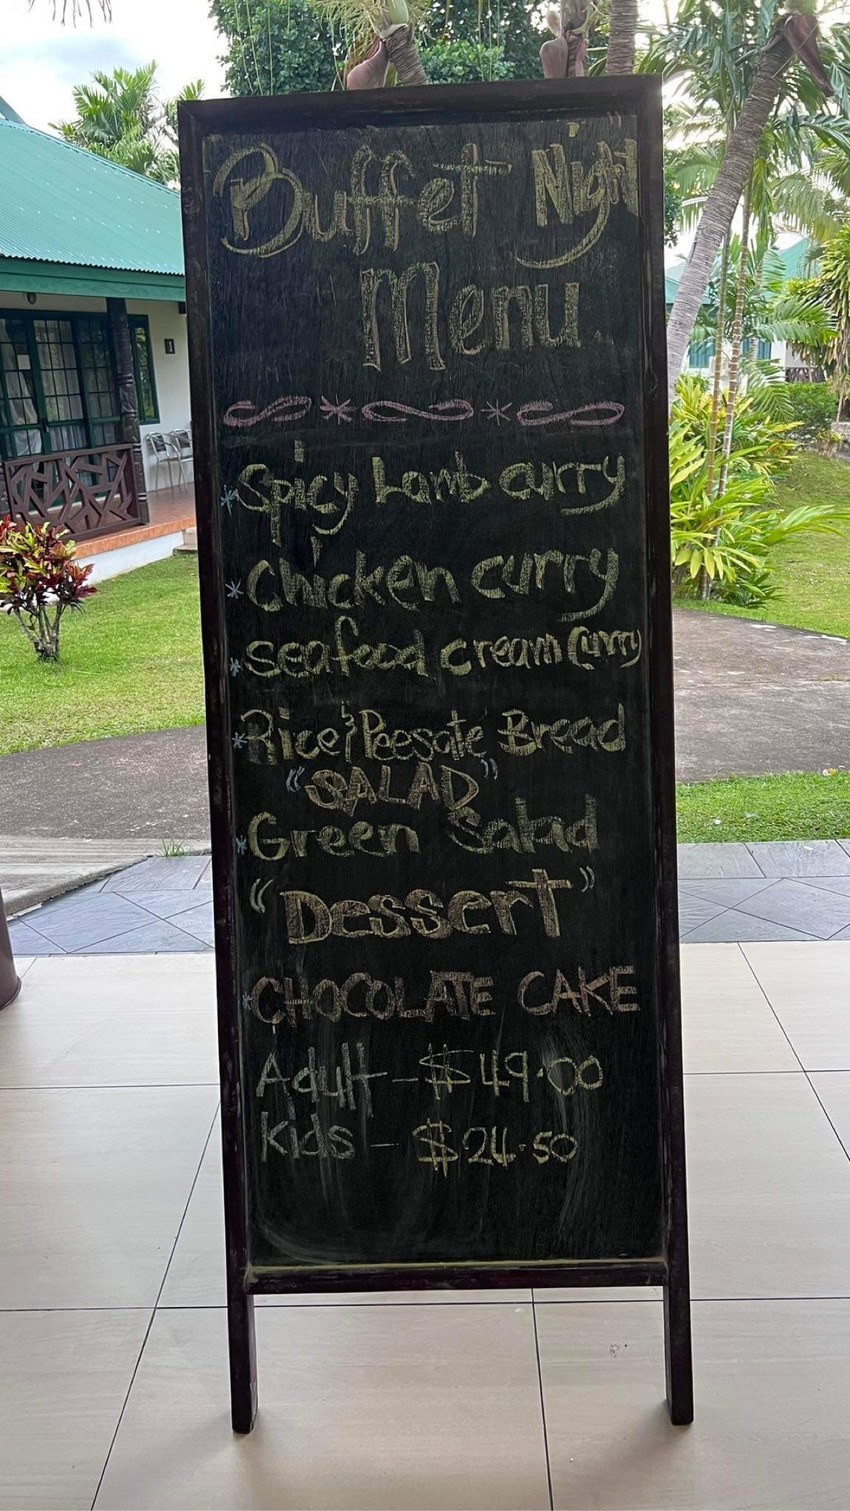 Buffet Night
Menu
* Spicy Lamb curry
* Chicken curry
* Seafood cream Curry
* Rice & Peesate Bread
"SALAD"
* Green Salad
"Dessert"
* CHOCOLATE CAKE
Adult - $49.00
Kids - $24.50